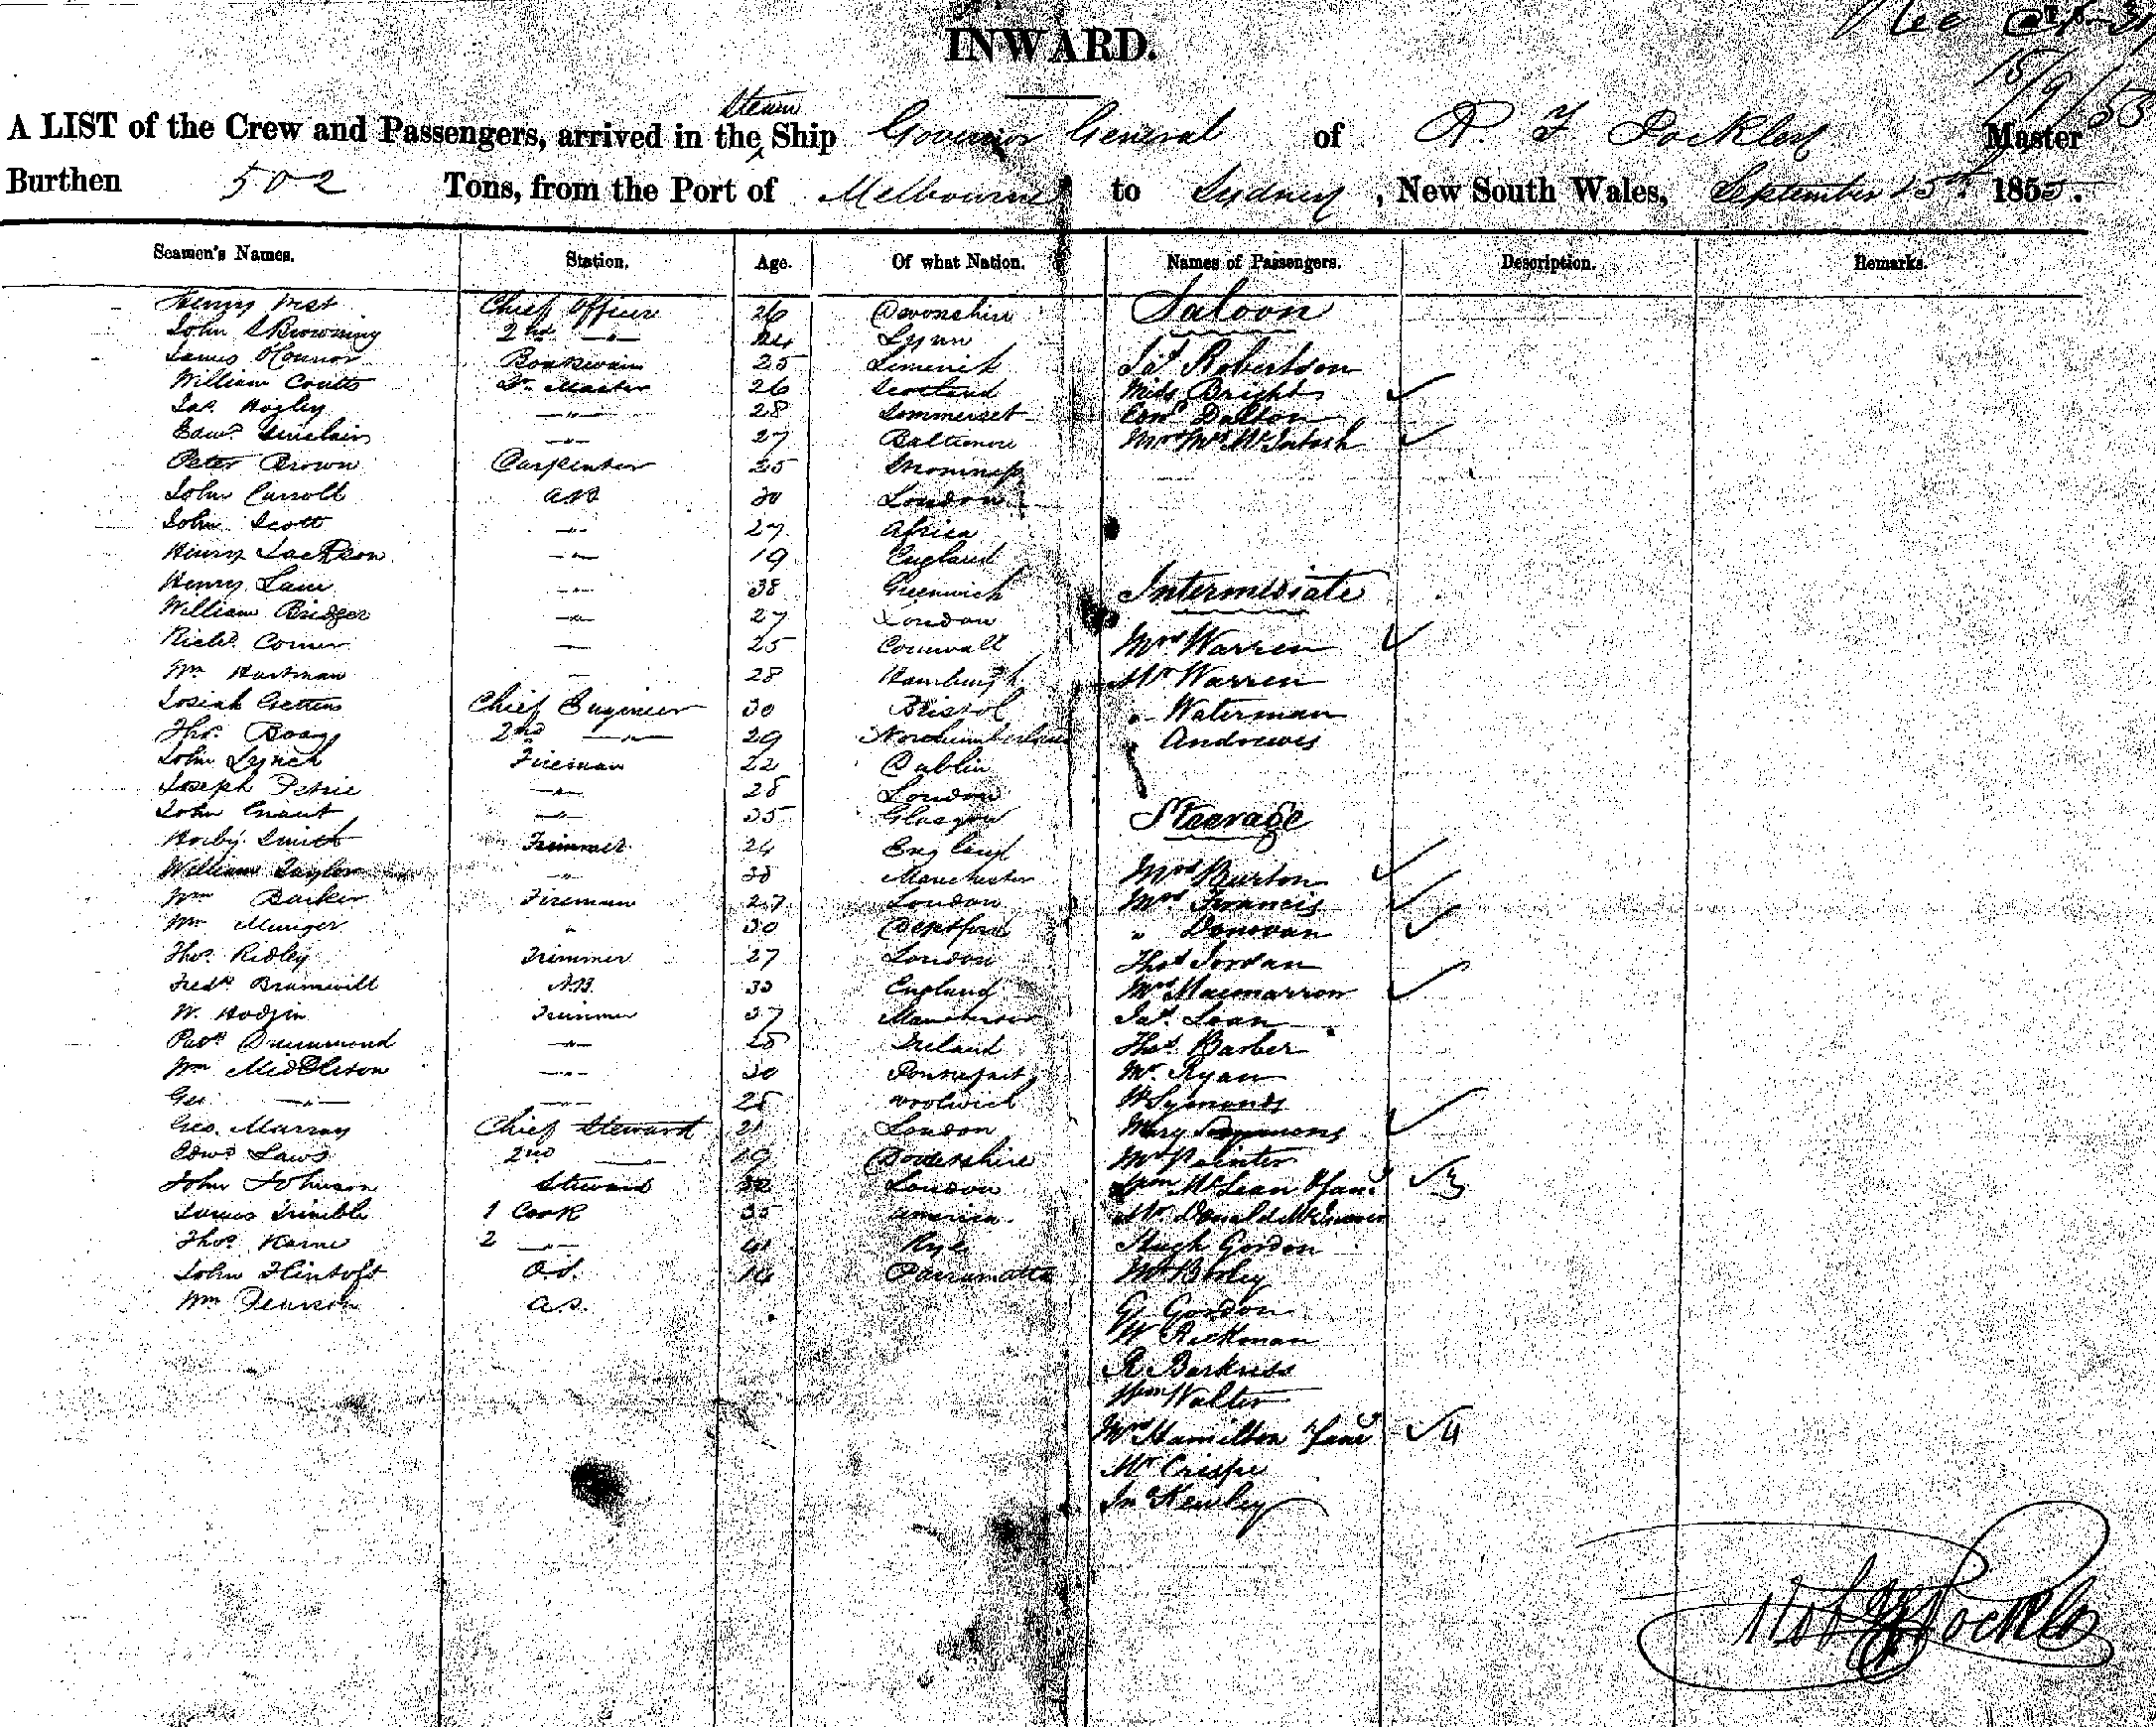 INWARD.
15/9/55
Steam
A LIST of the Crew and Passengers, arrived in the Ship Governor General of R. F. Pockley Master
Burthen 502 Tons, from the Port of Melbourne to Sydney, New South Wales, September 15th 1855.
Seamen's Names. Station. Age. Of what Nation. Names of Passengers. Description. Remarks.
Henry West Chief Officer 26 Devonshire Saloon
John S Browning 2nd -"- 24 Lynn
James O'Connor Boatswain 25 Limerick Jas Robertson
William Coutts Qr Master 26 Scotland Miss Bright
Jas. Hozley -"- 28 Sommerset Edmd Dalton
Edwd Sinclair -"- 27 Baltimore Mr & Mrs McIntosh
Peter Brown Carpenter 25
John Carroll AB 30 London
John Scott -"- 27 Africa
Henry Jackson -"- 19 England
Henry Lane -"- 38 Greenwich Intermediate
William Bridger -"- 27 London
Richd. Comer - 25 Cornwall Mrs Warren
Wm Hartman - 28 Hamburgh Mr Warren
Josiah Gettens Chief Engineer 30 Bristol " Waterman
Thos. Boag 2nd -"- 29 Northumberland " Andrews
John Lynch Fireman 22 Dublin
Joseph Petrie -"- 28 London
John Grant -"- 35 Glasgow Steerage
Smith Trimmer 24 England
William Taylor -"- 38 Manchester Mrs Burton
Wm Barker Fireman 27 London Mrs Francis
Wm Munger " 30 Deptford " Donovan
Thos. Ridley Trimmer 27 London Thos Jordan
Fredk Bramwill AB. 30 England Mrs Macmarron
W. Hodgin Trimmer 37 Manchester Jas. Lean
Patk Drummond -"- 25 Ireland Thos. Barber
Wm Middleton -"- 30 Pontefract Mr. Ryan
Geo. -"- -"- 25 Woolwich W Symonds
Geo. Murray Chief Steward 21 London Mary
Edwd Laws 2nd 19 Mr Painter
John Johnson Steward 32 London Wm McLean & fam. 3
James Trimble 1 Cook 35 America. Mr Donald
Thos. Karne 2 -"- 41 Ryde Hugh Gordon
John Flintoft O.S. 14 Parramatta Mr Borley
Wm Pearson A.S. G Gordon
W Rickman
R Barkness
Wm Walter
Mrs Hamilton & fam 4
Mr Crispe
Jn Kewley
Robt F Pockley